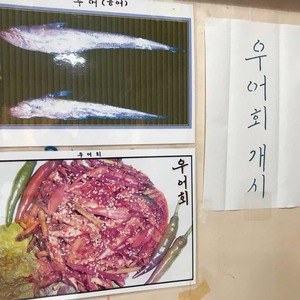 우어(웅어)
우어회
우어회
우어회 개시